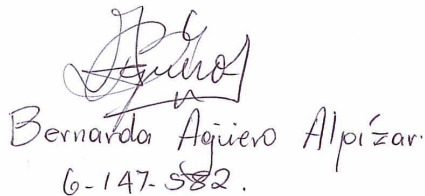 Bernarda Agüero Alpízar.
6-147-582.